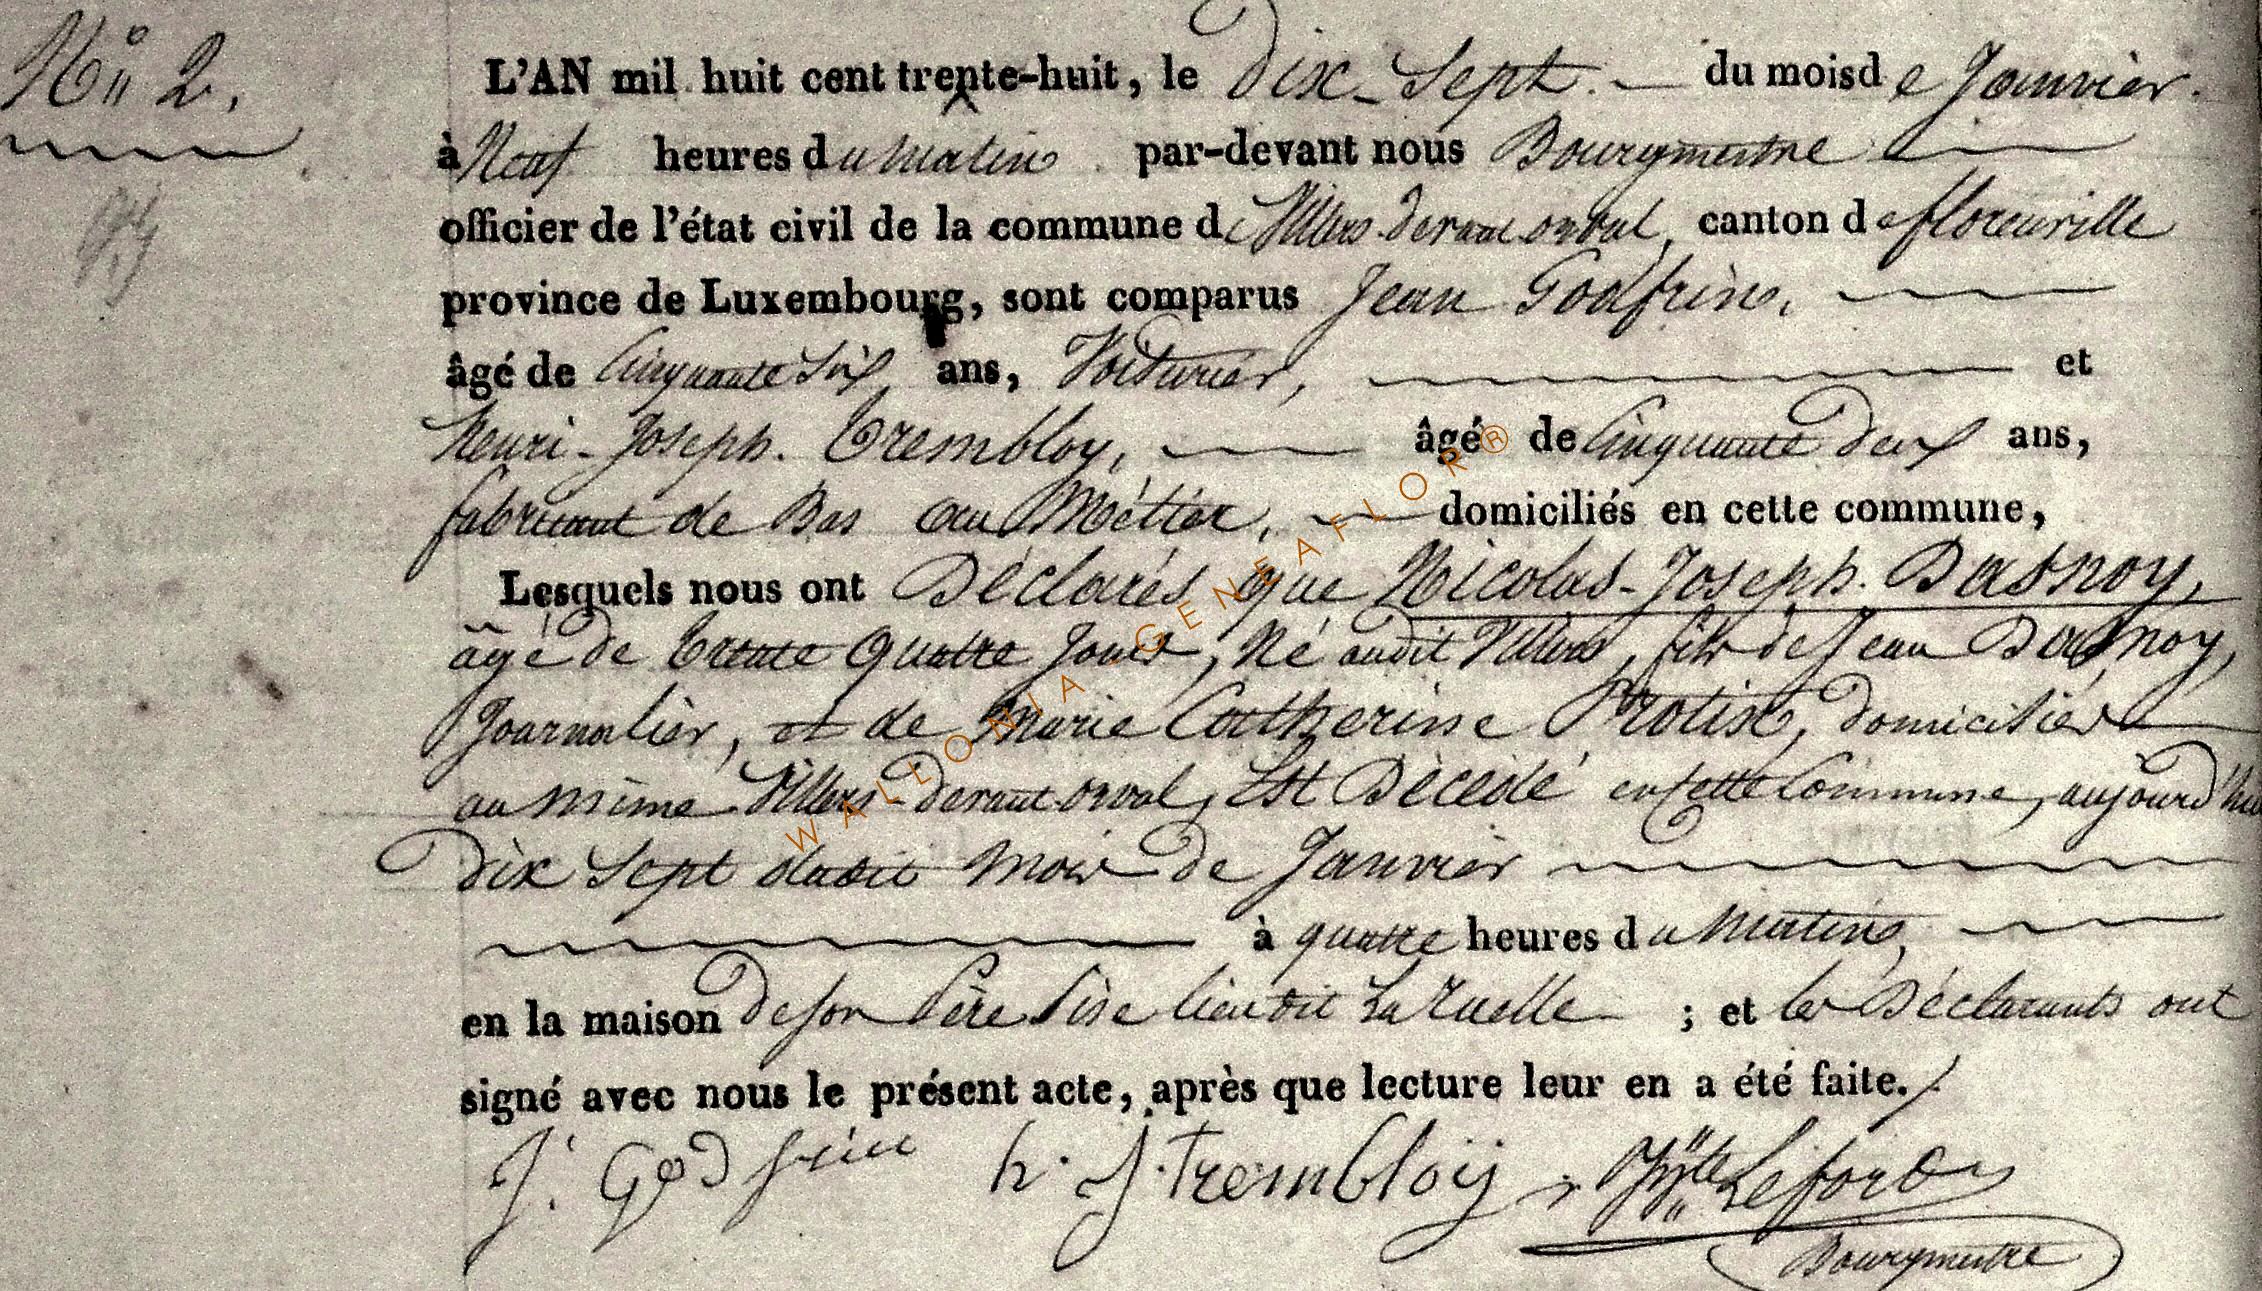 N° 2.
L'AN mil huit cent trente-huit, le Dix-Sept. du moisd e Janvier.
à Neuf heures du Matin par-devant nous Bourgmestre
officier de l'état civil de la commune de Villers-devant-orval, canton de florenville
province de Luxembourg, sont comparus Jean Godfrin,
âgé de Cinquante Six ans, Voiturier, et
henri-Joseph. Trembloy, âgé de Cinquante deux ans,
fabricant de Bas au Métier, domiciliés en cette commune,
Lesquels nous ont Déclarés que Nicolas-Joseph. Dasnoy,
âgé de trente quatre Jours, Né audit Villers, fils de Jean Dasnoy,
Journalier, et de Marie Catherine Protin, domiciliés
au même Villers-devant-orval, Est Décédé en cette Commune, aujourd'hui
Dix Sept dudit Mois de Janvier
à quatre heures du Matin,
en la maison de son Père Sise lieu dit La Ruelle ; et les Déclarants ont
signé avec nous le présent acte, après que lecture leur en a été faite./.
J. Godfrin h. J. Trembloy Hyte Lefort
Bourgmestre
WALLONIA-GENEAFLOR®